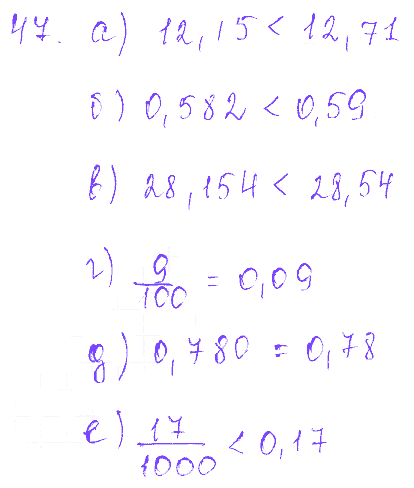 47. а) 12,15 < 12,71
б) 0,582 < 0,59
в) 28,154 < 28,54
г) 9/100 = 0,09
д) 0,780 = 0,78
е) 17/1000 < 0,17